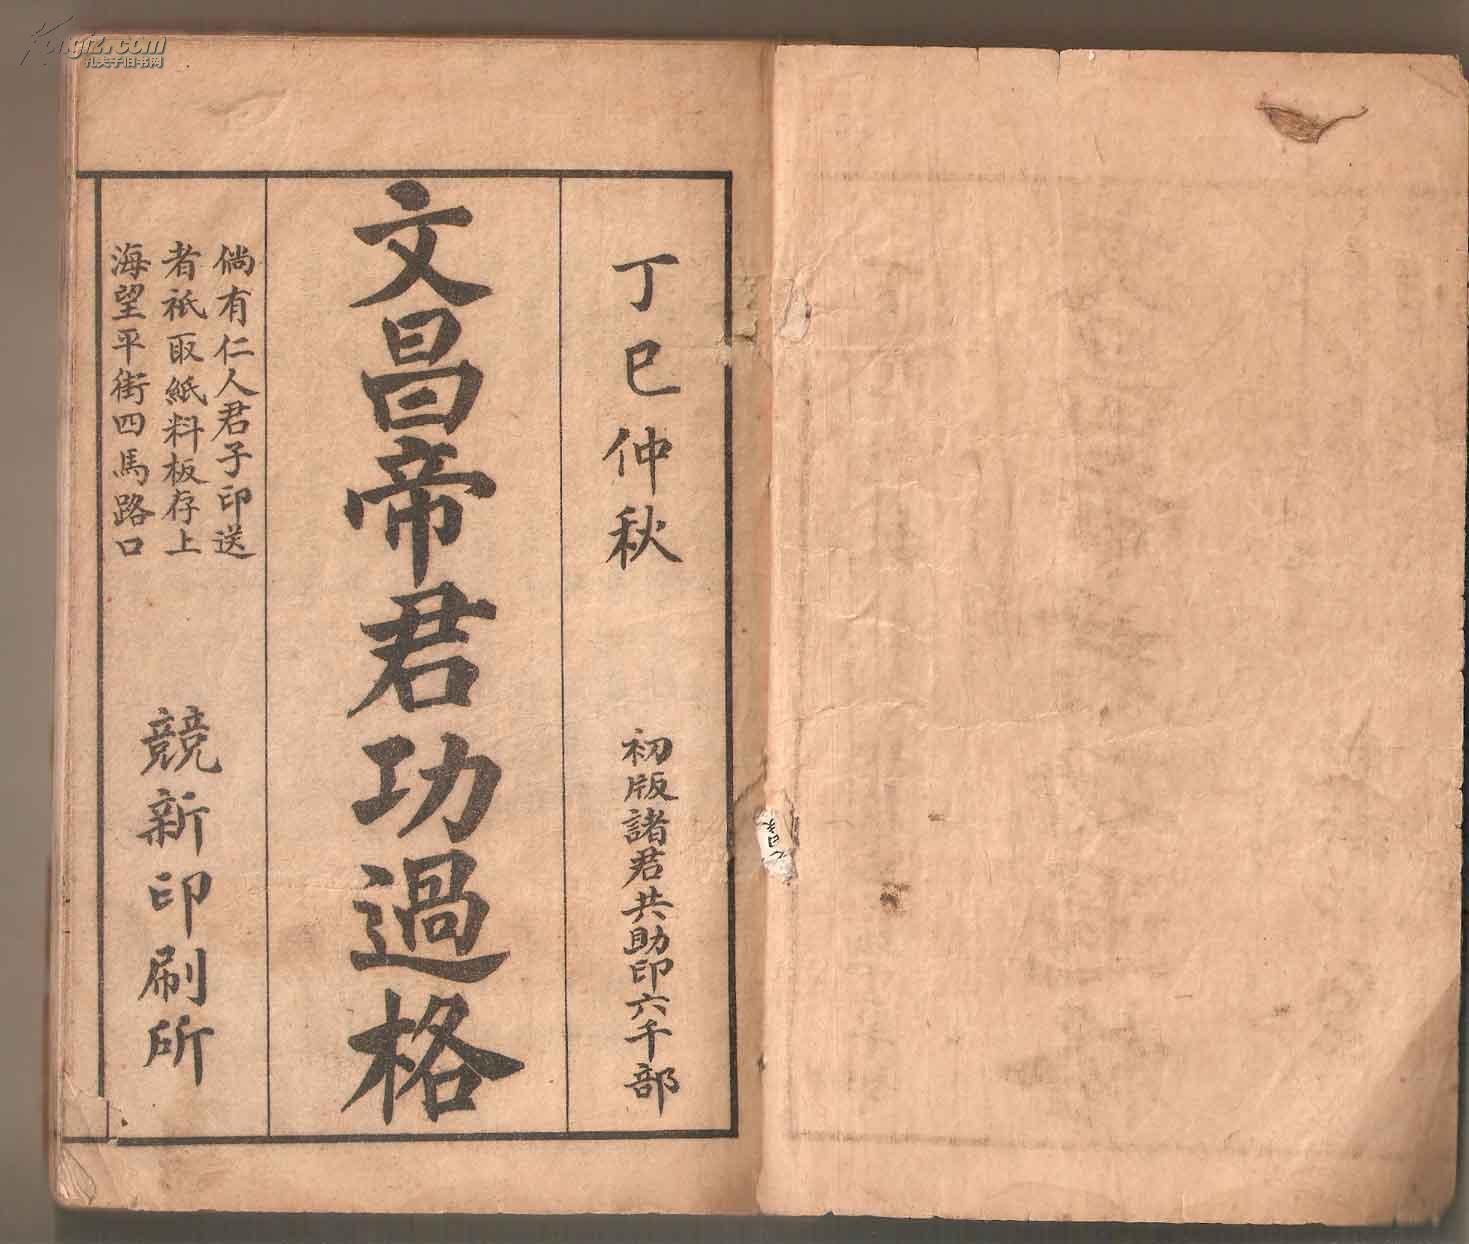 丁巳仲秋
初版諸君共助印六千部
文昌帝君功過格
倘有仁人君子印送
者祇取紙料板存上
海望平街四馬路口
競新印刷所
Kongfz.com
孔夫子旧书网